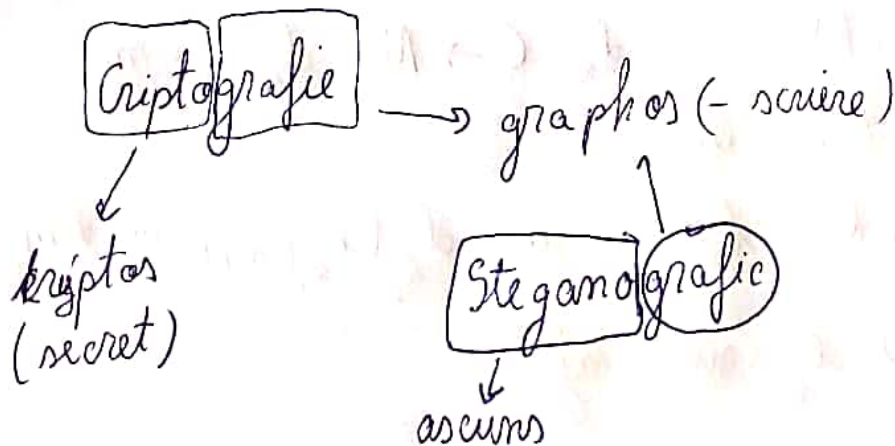 Criptografie
graphos (- scriere)
kryptos
(secret)
Steganografie
ascuns